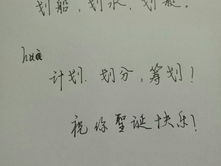 划船，划水，划艇。
huà
计划，划分，筹划！
祝你聖诞快乐！